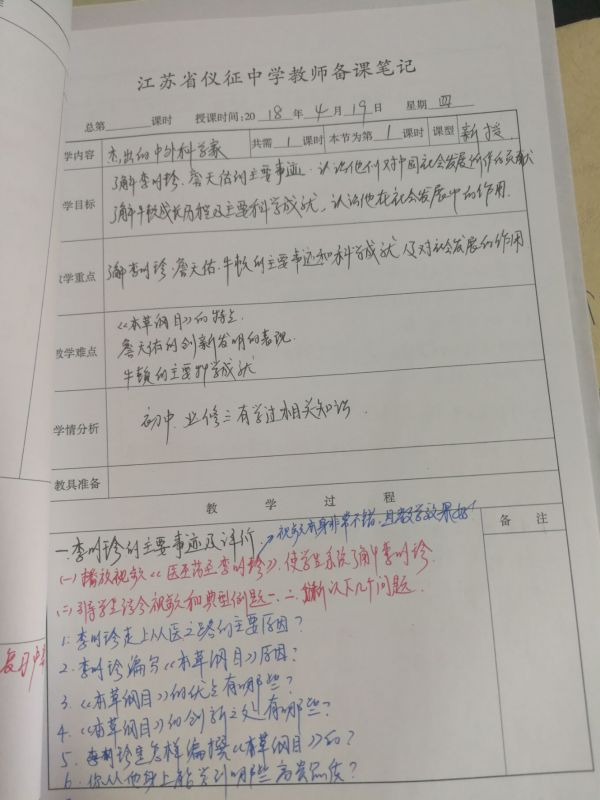 江苏省仪征中学教师备课笔记
总第 课时 授课时间:2018年4月19日 星期 四
学内容 杰出的中外科学家 共需 1 课时 本节为第 1 课时 课型 新授
了解李时珍、詹天佑的主要事迹,认识他们对中国社会发展所作的贡献
学目标
了解牛顿成长历程及主要科学成就,认识他在社会发展中的作用.
学重点 了解李时珍、詹天佑、牛顿的主要事迹和科学成就及对社会发展的作用
《本草纲目》的特点.
教学难点 詹天佑的创新发明的表现.
牛顿的主要科学成就
学情分析 初中、必修三有学过相关知识.
教具准备
教学过程
备 注
一.李时珍的主要事迹及评价. 视频本身非常不错,且教学效果好
(一)播放视频《医圣药王李时珍》,使学生系统了解李时珍.
(二)引导学生结合视频和典型例题一、二 以下几个问题.
1.李时珍走上从医之路的主要原因?
2.李时珍编写《本草纲目》原因?
3.《本草纲目》的优点有哪些?
4.《本草纲目》的创新之处有哪些?
5.李时珍是怎样编撰《本草纲目》的?
6.你从他身上能学到哪些高贵品质?
复习